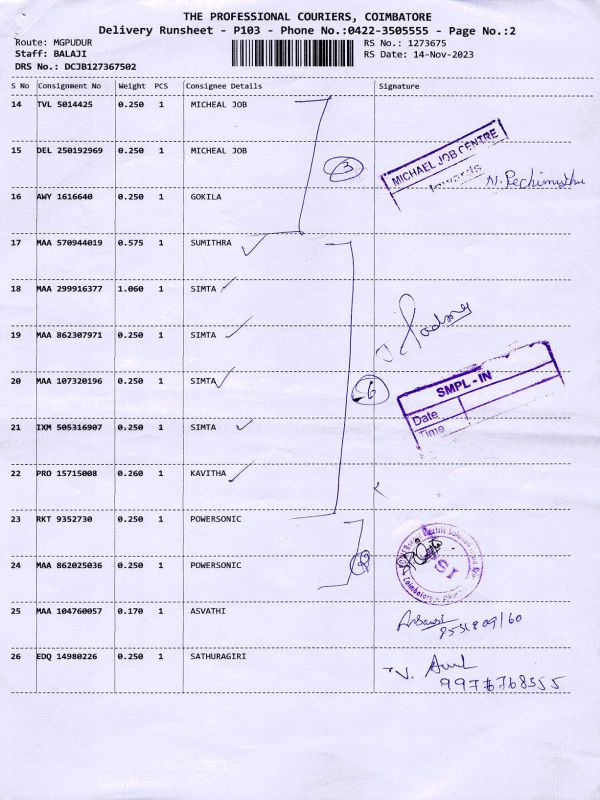 THE PROFESSIONAL COURIERS, COIMBATORE
Delivery Runsheet - P103 - Phone No.:0422-3505555 - Page No.:2
Route: MGPUDUR RS No.: 1273675
Staff: BALAJI RS Date: 14-Nov-2023
DRS No.: DCJB127367502
S No Consignment No Weight PCS Consignee Details Signature
14 TVL 5014425 0.250 1 MICHEAL JOB
15 DEL 250192969 0.250 1 MICHEAL JOB
3
MICHAEL JOB CENTRE
Inwards
N. Pechimuthu
16 AWY 1616640 0.250 1 GOKILA
17 MAA 570944019 0.575 1 SUMITHRA
18 MAA 299916377 1.060 1 SIMTA
19 MAA 862307971 0.250 1 SIMTA
20 MAA 107320196 0.250 1 SIMTA
6
SMPL - IN
Date
Time
21 IXM 505316907 0.250 1 SIMTA
22 PRO 15715008 0.260 1 KAVITHA
23 RKT 9352730 0.250 1 POWERSONIC
24 MAA 862025036 0.250 1 POWERSONIC
25 MAA 104760057 0.170 1 ASVATHI
26 EDQ 14980226 0.250 1 SATHURAGIRI
9976768555